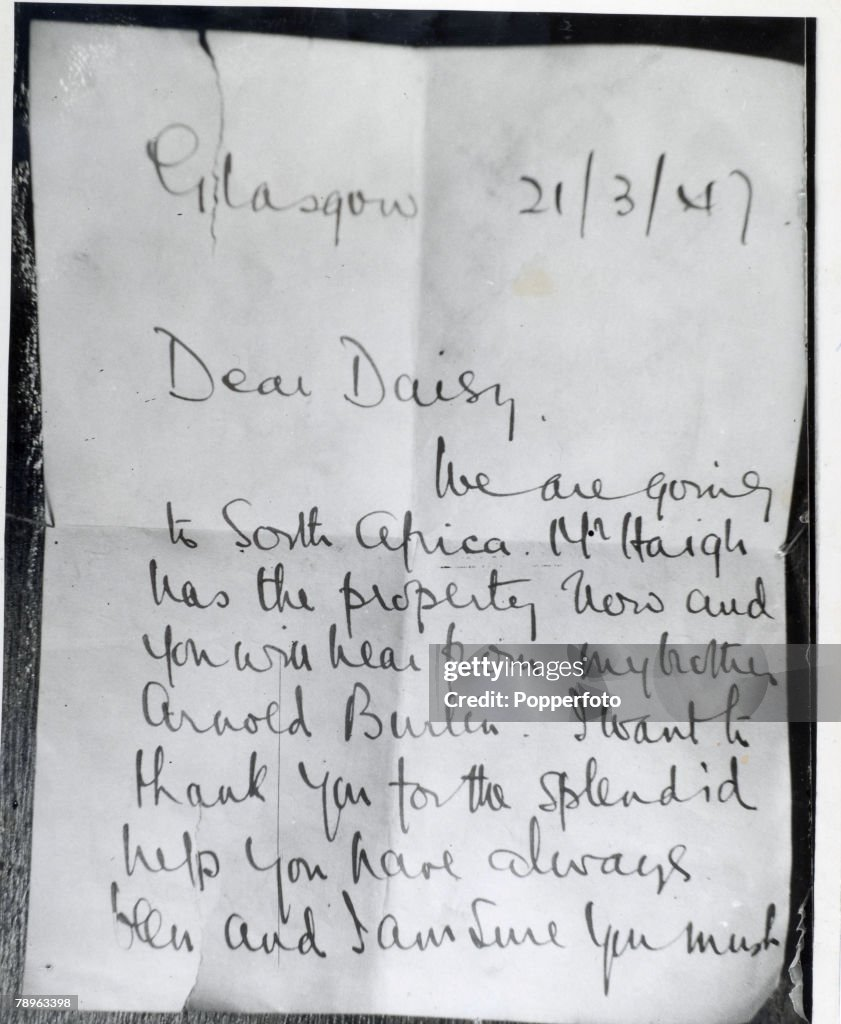 Glasgow 21/3/47
Dear Daisy.
We are going
to South Africa. Mr Haigh
has the property now and
you will hear from my brother
Arnold Burlin. I want to
thank you for the splendid
help you have always
been and I am sure you must
gettyimages
Credit: Popperfoto
78963398